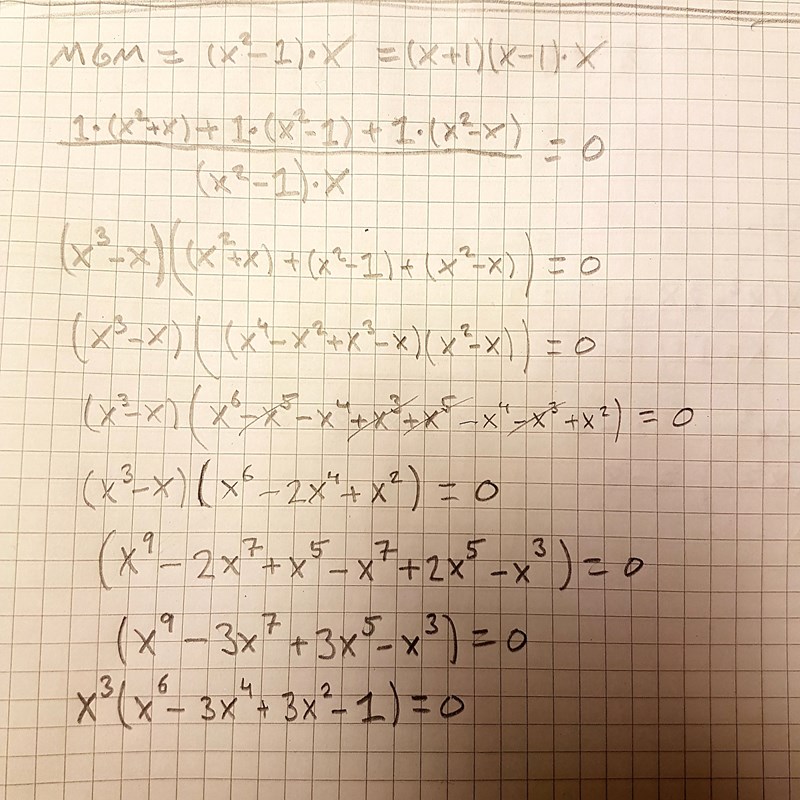 MGM = (x²-1)·x = (x+1)(x-1)·x
1·(x²+x) + 1·(x²-1) + 1·(x²-x) = 0
(x²-1)·x
(x³-x)((x²+x) + (x²-1) + (x²-x)) = 0
(x³-x)((x⁴-x²+x³-x)(x²-x)) = 0
(x³-x)(x⁶-x⁵-x⁴+x³+x⁵-x⁴-x³+x²) = 0
(x³-x)(x⁶-2x⁴+x²) = 0
(x⁹-2x⁷+x⁵-x⁷+2x⁵-x³) = 0
(x⁹-3x⁷+3x⁵-x³) = 0
x³(x⁶-3x⁴+3x²-1) = 0